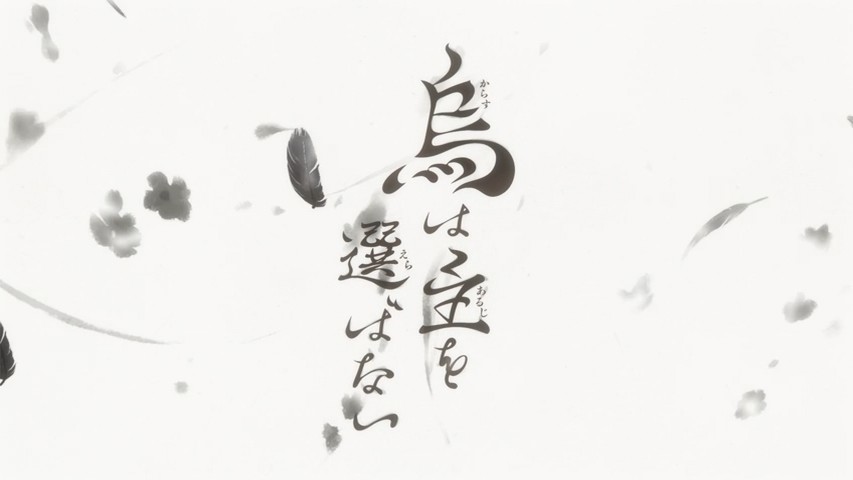 烏は主を
からす
あるじ
選ばない
えら